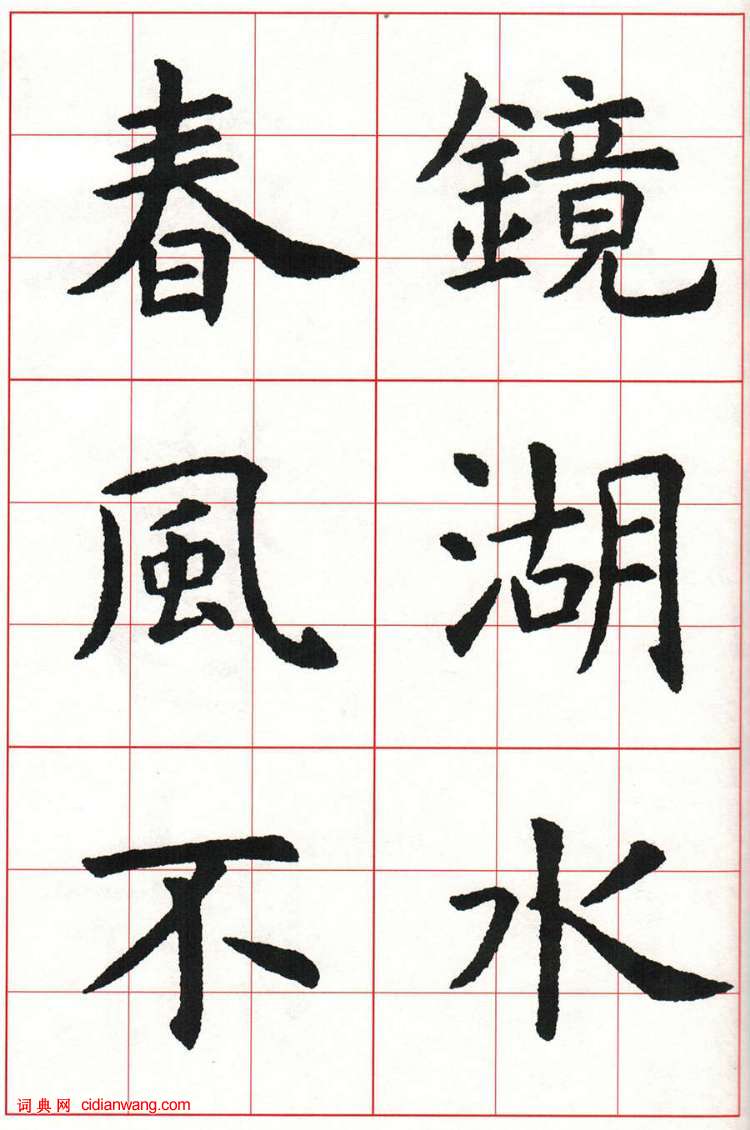 鏡湖水
春風不
词典网 cidianwang.com